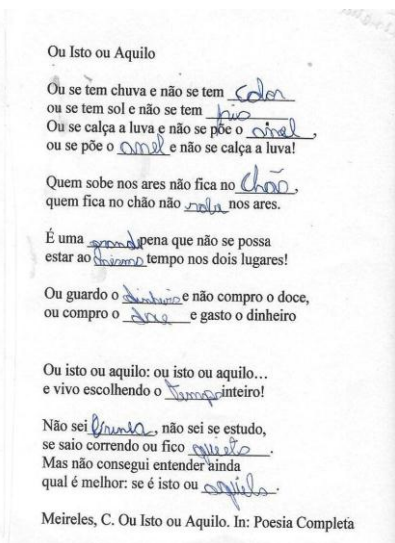 Ou Isto ou Aquilo
Ou se tem chuva e não se tem calor
ou se tem sol e não se tem frio
Ou se calça a luva e não se põe o anel,
ou se põe o anel e não se calça a luva!
Quem sobe nos ares não fica no Chão,
quem fica no chão não nos ares.
É uma grande pena que não se possa
estar ao mesmo tempo nos dois lugares!
Ou guardo o dinheiro e não compro o doce,
ou compro o doce e gasto o dinheiro
Ou isto ou aquilo: ou isto ou aquilo...
e vivo escolhendo o tempo inteiro!
Não sei , não sei se estudo,
se saio correndo ou fico quieto.
Mas não consegui entender ainda
qual é melhor: se é isto ou aquilo.
Meireles, C. Ou Isto ou Aquilo. In: Poesia Completa